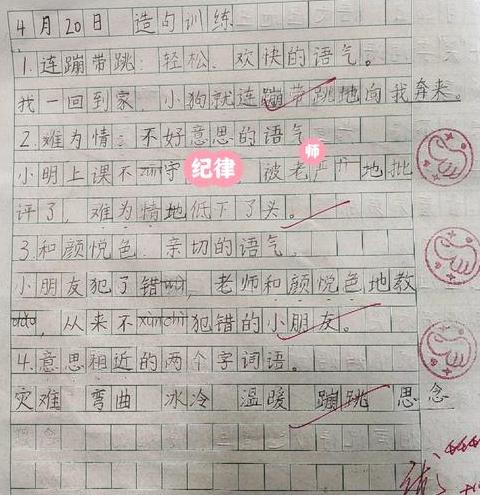 4月20日 造句训练
1.连蹦带跳:轻松、欢快的语气。
我一回到家,小狗就连蹦带跳地向我奔来。
2.难为情:不好意思的语气
小明上课不zūn守纪律,被老师严厉地批
评了,难为情地低下了头。
3.和颜悦色:亲切的语气。
小朋友犯了错,老师和颜悦色地教
,从来不xùnchì犯错的小朋友。
4.意思相近的两个字词语。
灾难 弯曲 冰冷 温暖 蹦跳 思念